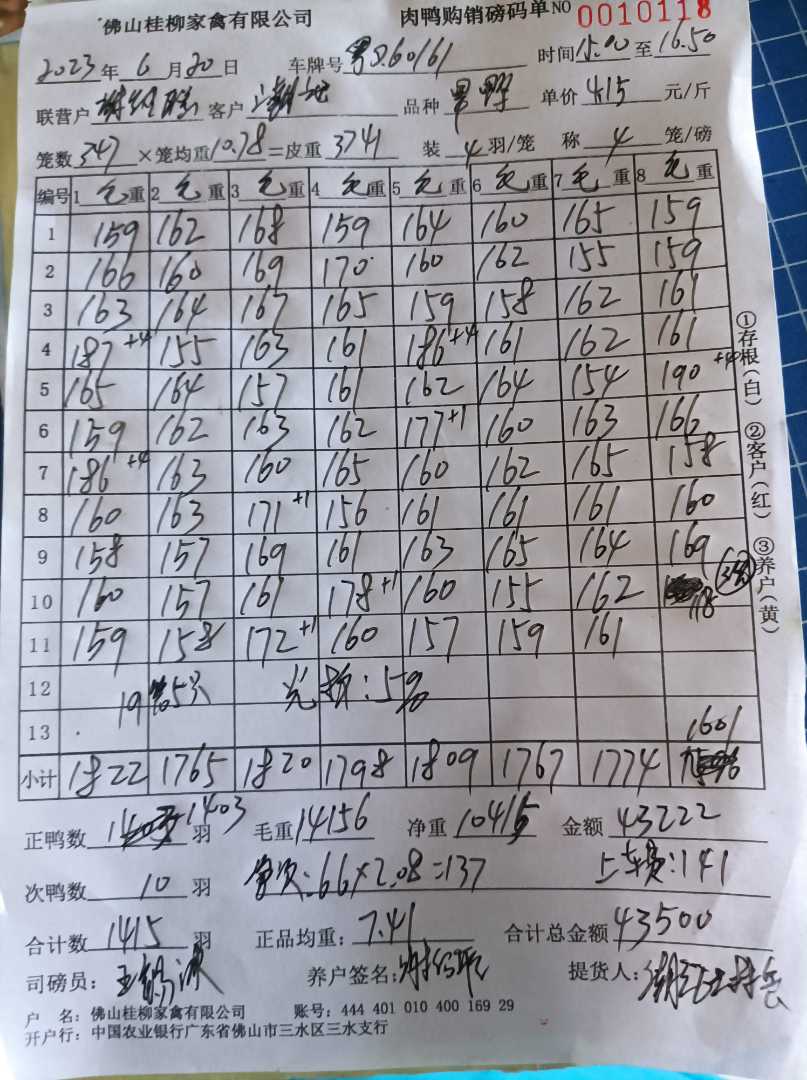 佛山桂柳家禽有限公司 肉鸭购销磅码单 NO 0010118
2023 年 6 月 20 日 车牌号 时间 15.00 至 16.50
联营户 客户 品种 单价 4.15 元/斤
笼数 347 ×笼均重 10.78 =皮重 3741 装 4 羽/笼 称 4 笼/磅
编号 1 毛重 2 毛重 3 毛重 4 毛重 5 毛重 6 毛重 7 毛重 8 毛重
1 159 162 168 159 164 160 165 159
2 166 160 169 170 160 162 155 159
3 163 164 167 165 159 158 162 161
4 187+4 155 163 161 186+4 161 162 161
5 165 164 157 161 162 164 154 190+4
6 159 162 163 162 177+1 160 163 166
7 186+4 163 160 165 160 162 165 158
8 160 163 171+1 156 161 161 161 160
9 158 157 169 161 163 165 164 169
10 160 157 161 178+1 160 155 162 118
11 159 158 172+1 160 157 159 161
12 5只 5%
13 1601
小计 1822 1765 1820 1798 1809 1767 1774
①存根(白) ②客户(红) ③养户(黄)
正鸭数 1403 羽 毛重 14156 净重 10415 金额 43222
次鸭数 10 羽 66×2.08=137 上车费:141
合计数 1415 羽 正品均重: 7.41 合计总金额 43500
司磅员: 养户签名: 提货人:
户 名: 佛山桂柳家禽有限公司 账号: 444 401 010 400 169 29
开户行: 中国农业银行广东省佛山市三水区三水支行